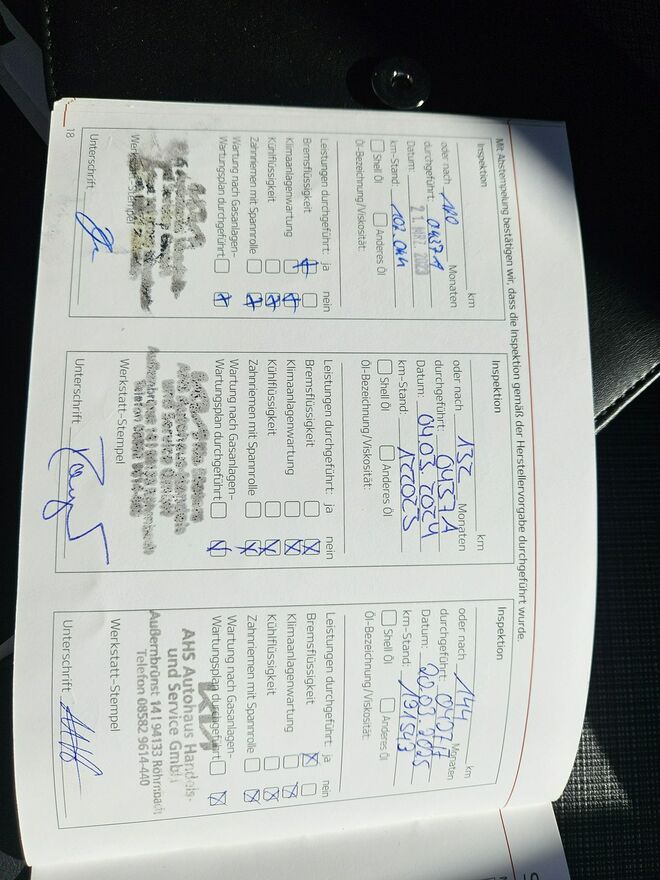 Mit Abstempelung bestätigen wir, dass die Inspektion gemäß der Herstellervorgabe durchgeführt wurde.
Inspektion
km
oder nach 120 Monaten
durchgeführt: 04371
Datum: 21. MRZ. 2023
km-Stand: 102.044
Shell Öl Anderes Öl
Öl-Bezeichnung/Viskosität:
Leistungen durchgeführt: ja nein
Bremsflüssigkeit
Klimaanlagenwartung
Kühlflüssigkeit
Zahnriemen mit Spannrolle
Wartung nach Gasanlagen-
Wartungsplan durchgeführt
Werkstatt-Stempel
Unterschrift
18
Inspektion
km
oder nach 132 Monaten
durchgeführt: 04371
Datum: 04.03.2024
km-Stand: 122023
Shell Öl Anderes Öl
Öl-Bezeichnung/Viskosität:
Leistungen durchgeführt: ja nein
Bremsflüssigkeit
Klimaanlagenwartung
Kühlflüssigkeit
Zahnriemen mit Spannrolle
Wartung nach Gasanlagen-
Wartungsplan durchgeführt
AHS Autohaus Handels-
und Service GmbH
Außernbrünst 14 | 94133 Röhrnbach
Werkstatt-Stempel
Unterschrift
Inspektion
km
oder nach 144 Monaten
durchgeführt:
Datum: 20.02.2025
km-Stand: 131543
Shell Öl Anderes Öl
Öl-Bezeichnung/Viskosität:
Leistungen durchgeführt: ja nein
Bremsflüssigkeit
Klimaanlagenwartung
Kühlflüssigkeit
Zahnriemen mit Spannrolle
Wartung nach Gasanlagen-
Wartungsplan durchgeführt
KIA
AHS Autohaus Handels-
und Service GmbH
Außernbrünst 14 | 94133 Röhrnbach
Telefon 08582 9614-440
Werkstatt-Stempel
Unterschrift